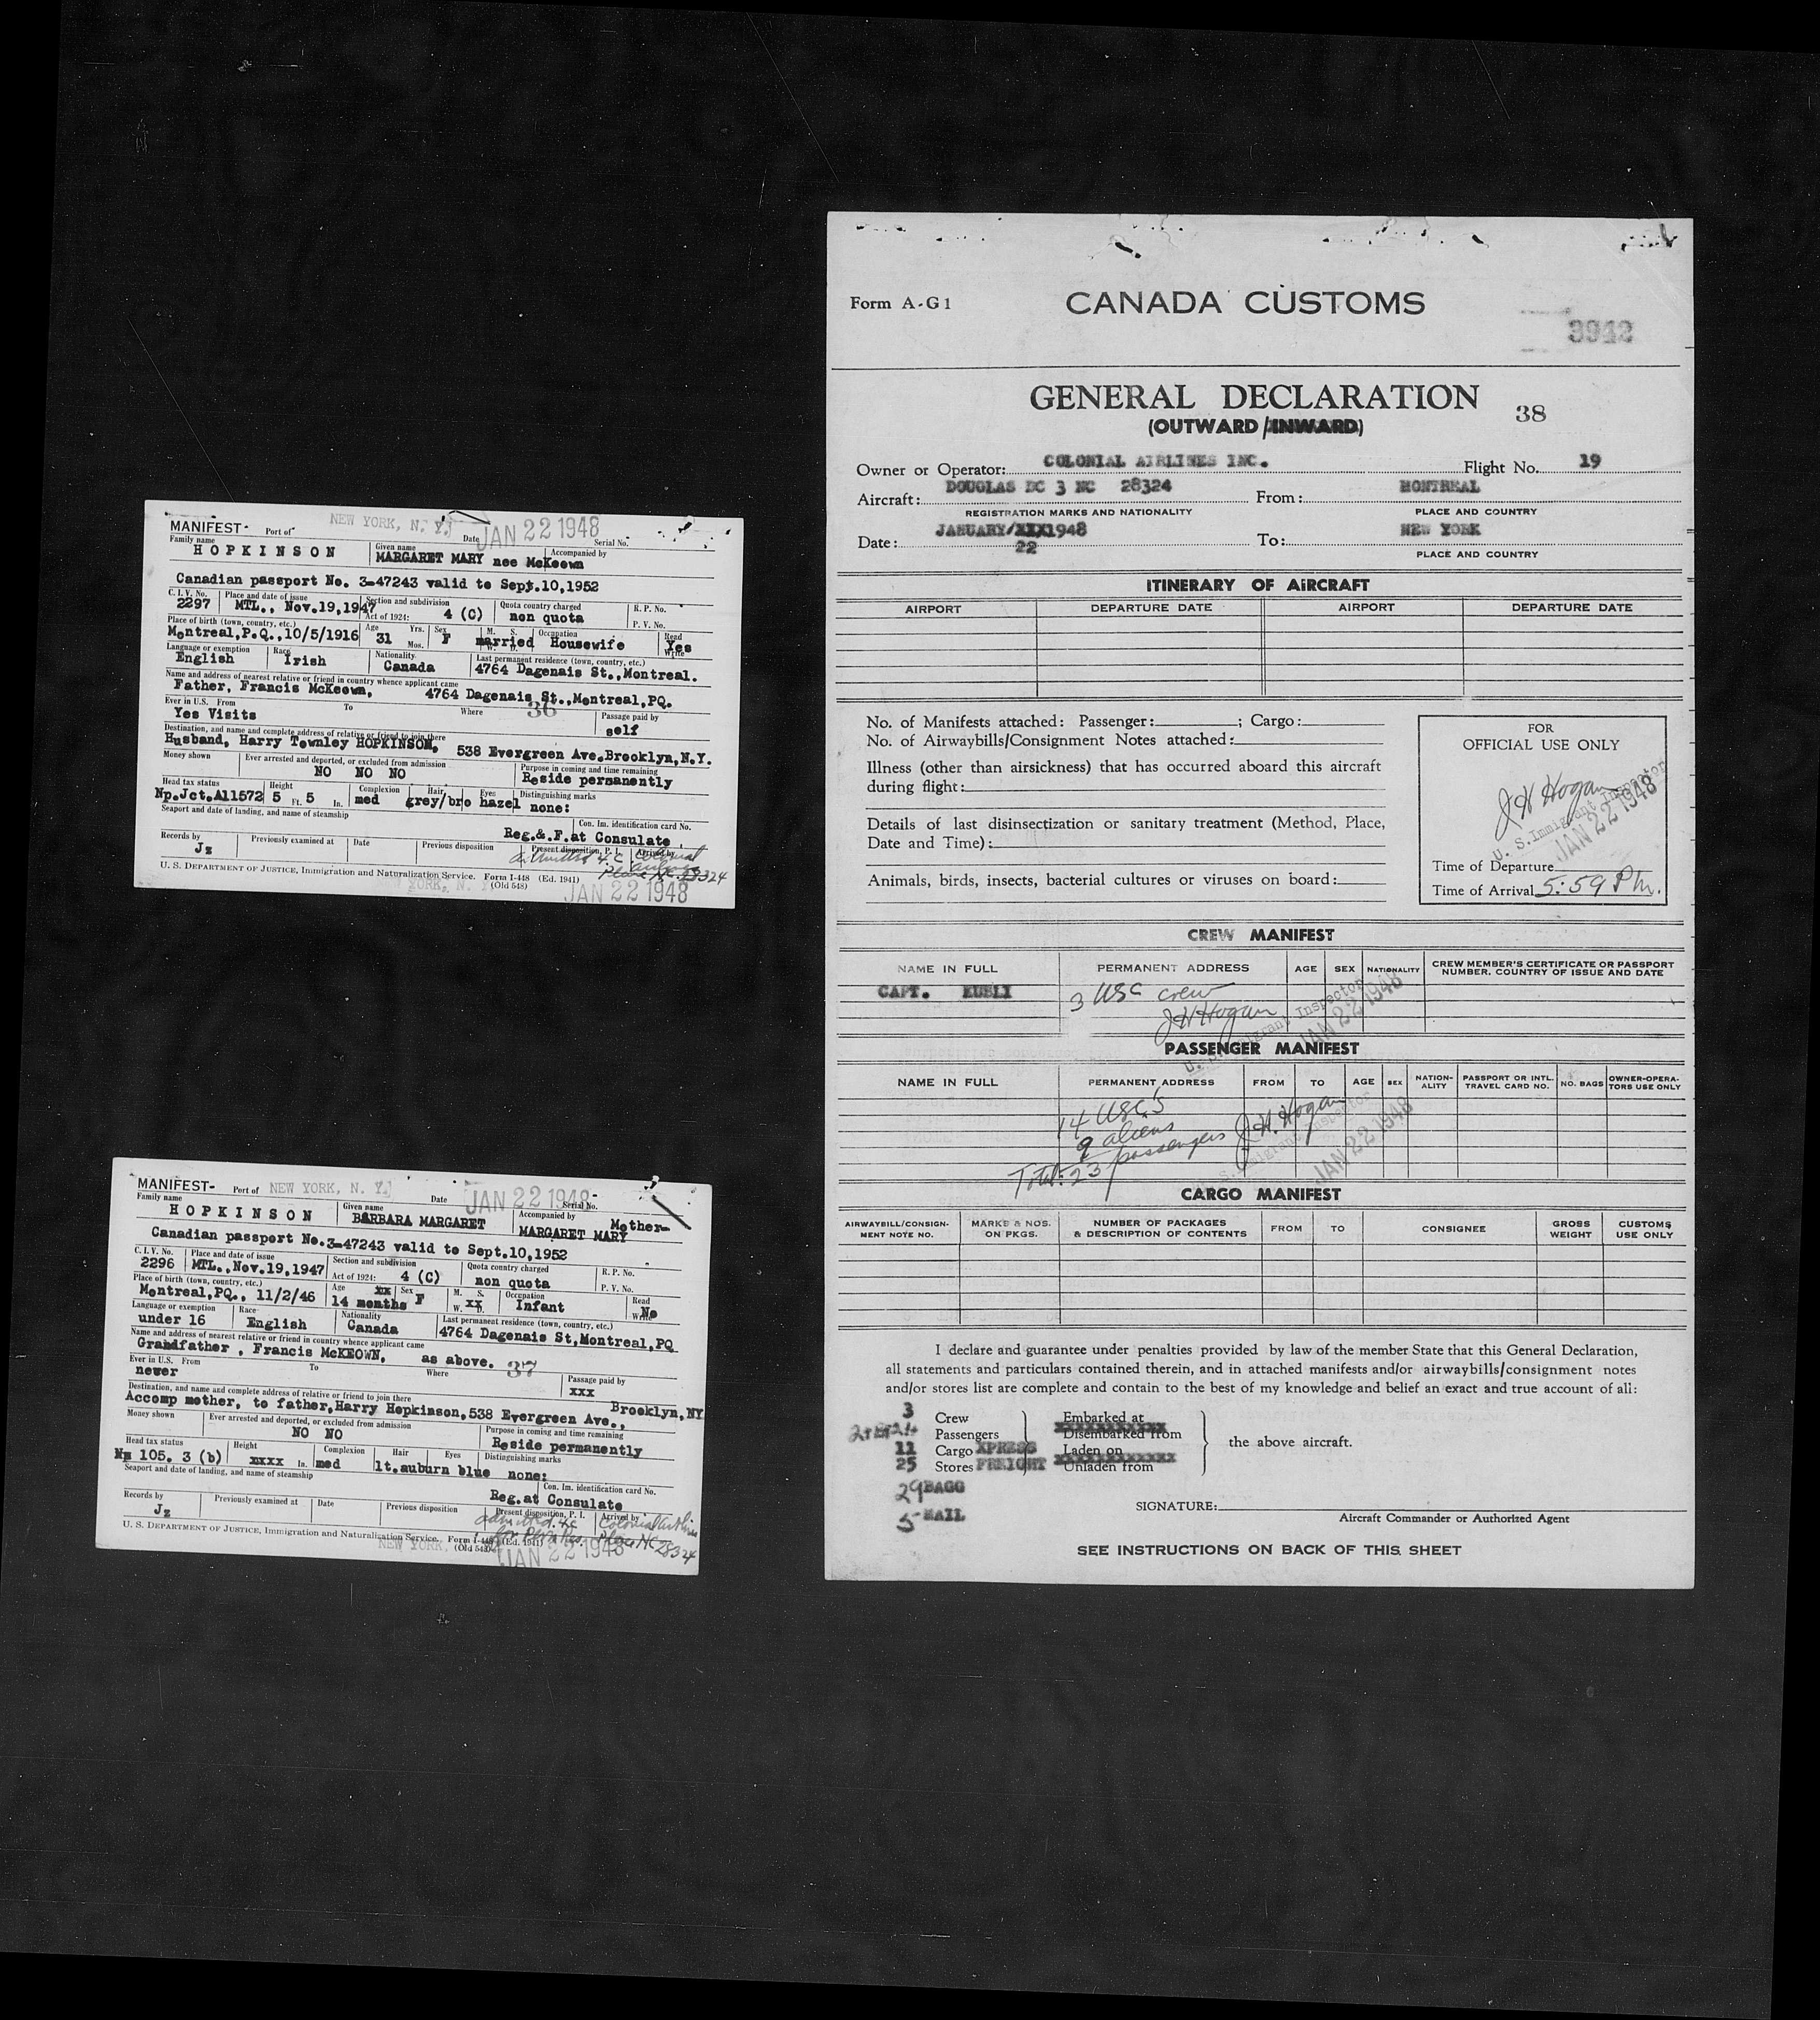 MANIFEST- Port of NEW YORK, N. Y. Date JAN 22 1948 Serial No.
Family name Given name Accompanied by
HOPKINSON MARGARET MARY nee McKeown
Canadian passport No. 3-47243 valid to Sept.10,1952
C. I. V. No. Place and date of issue Section and subdivision Quota country charged R. P. No.
2297 MTL., Nov.19,1947 Act of 1924: 4 (C) non quota P. V. No.
Place of birth (town, country, etc.) Age Yrs. Sex M. S. Occupation Read
Montreal,P.Q.,10/5/1916 31 Mos. F married W. D. Housewife Yes Write
Language or exemption Race Nationality Last permanent residence (town, country, etc.)
English Irish Canada 4764 Dagenais St.,Montreal.
Name and address of nearest relative or friend in country whence applicant came
Father, Francis McKeown, 4764 Dagenais St.,Montreal,PQ.
Ever in U.S. From To Where 36 Passage paid by
Yes Visits self
Destination, and name and complete address of relative or friend to join there
Husband, Harry Townley HOPKINSON, 538 Evergreen Ave.Brooklyn,N.Y.
Money shown Ever arrested and deported, or excluded from admission Purpose in coming and time remaining
NO NO NO Reside permanently
Head tax status Height Complexion Hair Eyes Distinguishing marks
Np.Jct.A11572 5 Ft. 5 In. med grey/bro hazel none:
Seaport and date of landing, and name of steamship Con. Im. identification card No.
Reg.&.F.at Consulate
Records by Previously examined at Date Previous disposition Present disposition, P. I. Arrived by
Jz admitted 4 C Colonial Airlines
Plane NC 28324
U. S. DEPARTMENT OF JUSTICE, Immigration and Naturalization Service. Form I-448 (Ed. 1941)
(Old 548)
YORK, N. Y. JAN 22 1948
MANIFEST- Port of NEW YORK, N. Y. Date JAN 22 1948 Serial No.
Family name Given name Accompanied by Mother-
HOPKINSON BARBARA MARGARET MARGARET MARY
Canadian passport No.3-47243 valid to Sept.10,1952
C. I. V. No. Place and date of issue Section and subdivision Quota country charged R. P. No.
2296 MTL.,Nov.19,1947 Act of 1924: 4 (C) non quota P. V. No.
Place of birth (town, country, etc.) Age xx Sex M. S. Occupation Read
Montreal,PQ., 11/2/46 14 months F W. xx D. Infant No Write
Language or exemption Race Nationality Last permanent residence (town, country, etc.)
under 16 English Canada 4764 Dagenais St,Montreal,PQ
Name and address of nearest relative or friend in country whence applicant came
Grandfather , Francis McKEOWN, as above.
Ever in U.S. From To Where 37 Passage paid by
never xxx
Destination, and name and complete address of relative or friend to join there Brooklyn,NY
Accomp mother, to father,Harry Hopkinson,538 Evergreen Ave.,
Money shown Ever arrested and deported, or excluded from admission Purpose in coming and time remaining
NO NO Reside permanently
Head tax status Height Complexion Hair Eyes Distinguishing marks
Np 105. 3 (b) xxxx In. med lt.auburn blue none:
Seaport and date of landing, and name of steamship Con. Im. identification card No.
Reg.at Consulate
Records by Previously examined at Date Previous disposition Present disposition, P. I. Arrived by
Jz admitted 4c Colonial Airlines
for Perm Res. Plane NC 28324
U. S. DEPARTMENT OF JUSTICE, Immigration and Naturalization Service. Form I-448 (Ed. 1941)
(Old 548)
NEW YORK, JAN 22 1948
Form A-G1 CANADA CUSTOMS
3942
GENERAL DECLARATION 38
(OUTWARD/INWARD)
Owner or Operator: COLONIAL AIRLINES INC. Flight No. 19
Aircraft: DOUGLAS DC 3 NC 28324 From: MONTREAL
REGISTRATION MARKS AND NATIONALITY PLACE AND COUNTRY
Date: JANUARY/XXX1948 To: NEW YORK
22 PLACE AND COUNTRY
ITINERARY OF AIRCRAFT
AIRPORT DEPARTURE DATE AIRPORT DEPARTURE DATE
No. of Manifests attached: Passenger: ; Cargo:
No. of Airwaybills/Consignment Notes attached:
Illness (other than airsickness) that has occurred aboard this aircraft
during flight:
Details of last disinsectization or sanitary treatment (Method, Place,
Date and Time):
Animals, birds, insects, bacterial cultures or viruses on board:
FOR
OFFICIAL USE ONLY
J H Hogan
U. S. Immigrant Inspector
JAN 22 1948
Time of Departure
Time of Arrival 5:59 Pm.
CREW MANIFEST
NAME IN FULL PERMANENT ADDRESS AGE SEX NATIONALITY CREW MEMBER'S CERTIFICATE OR PASSPORT NUMBER, COUNTRY OF ISSUE AND DATE
CAPT. KUBLI 3 USC crew
J H Hogan
U. S. Immigrant Inspector
JAN 22 1948
PASSENGER MANIFEST
NAME IN FULL PERMANENT ADDRESS FROM TO AGE SEX NATION-ALITY PASSPORT OR INTL. TRAVEL CARD NO. NO. BAGS OWNER-OPERA-TORS USE ONLY
14 USC's
9 aliens
Total: 23 passengers J. H. Hogan
S. Immigrant Inspector
JAN 22 1948
CARGO MANIFEST
AIRWAYBILL/CONSIGN-MENT NOTE NO. MARKS & NOS. ON PKGS. NUMBER OF PACKAGES & DESCRIPTION OF CONTENTS FROM TO CONSIGNEE GROSS WEIGHT CUSTOMS USE ONLY
I declare and guarantee under penalties provided by law of the member State that this General Declaration,
all statements and particulars contained therein, and in attached manifests and/or airwaybills/consignment notes
and/or stores list are complete and contain to the best of my knowledge and belief an exact and true account of all:
3 Crew Embarked at
Passengers Disembarked from
11 Cargo XPRESS Laden on the above aircraft.
25 Stores FREIGHT Unladen from
29 BAGG
5 MAIL
SIGNATURE:
Aircraft Commander or Authorized Agent
SEE INSTRUCTIONS ON BACK OF THIS SHEET